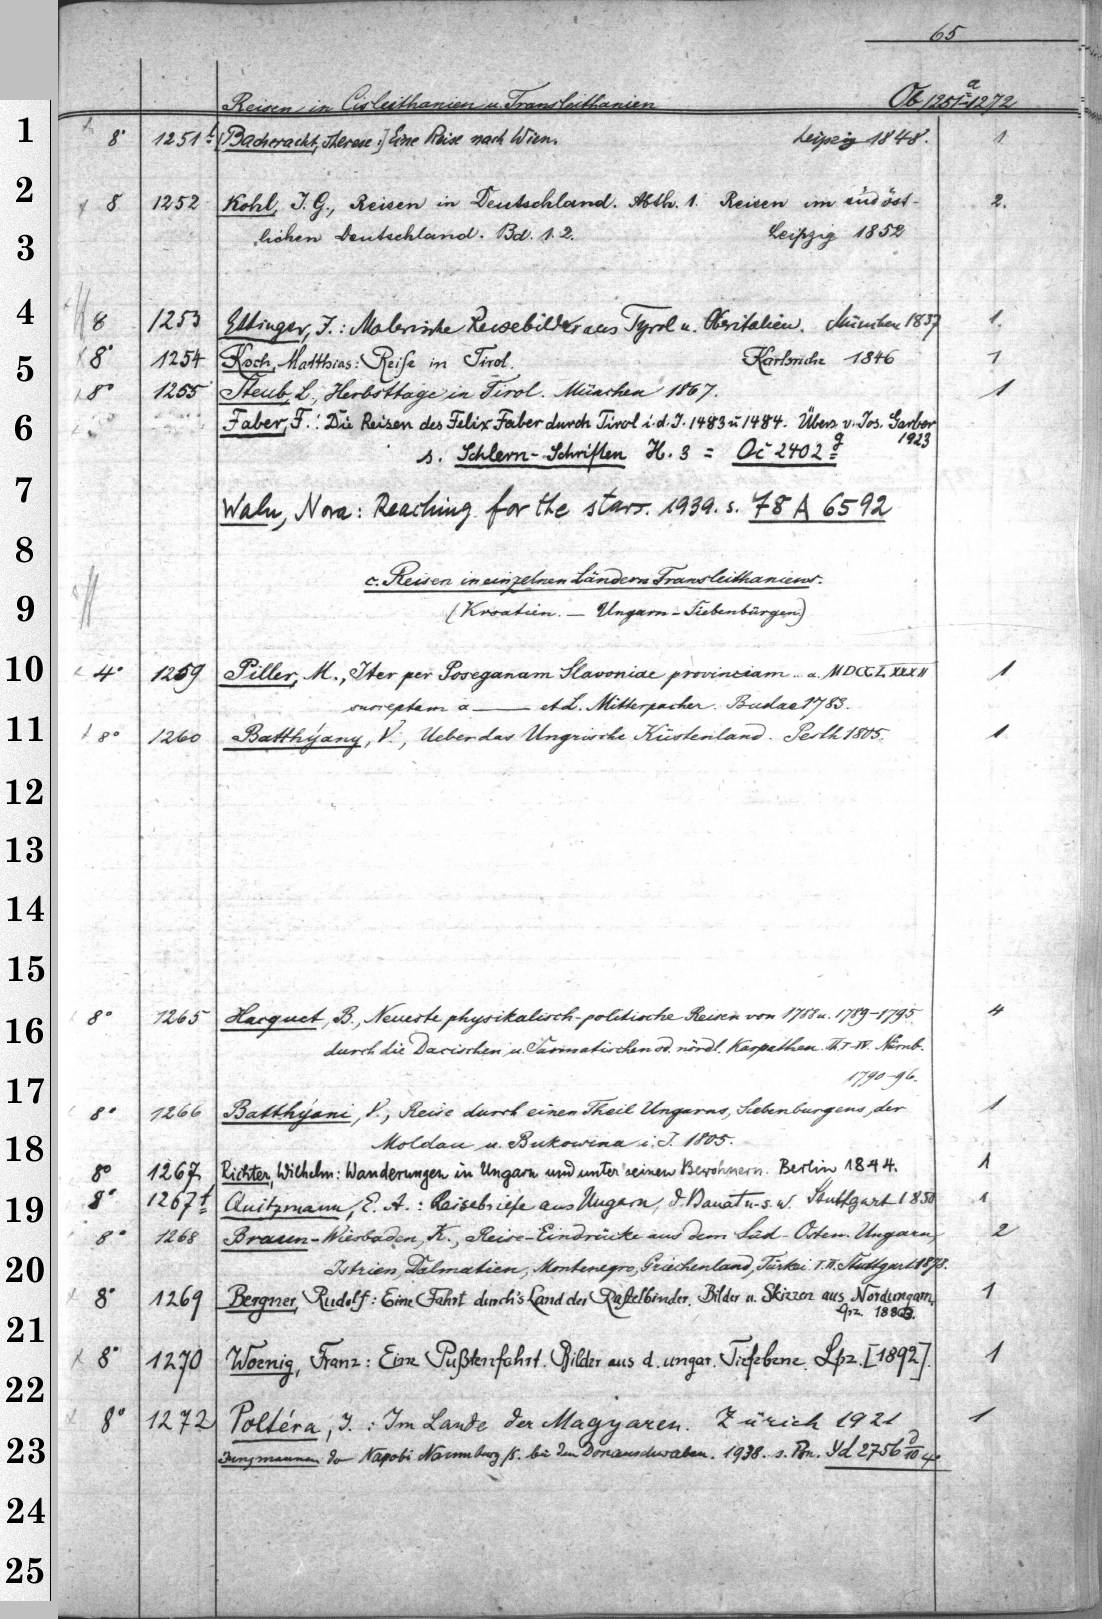 65
Reisen in Cisleithanien u. Transleithanien Ob 1251a-1272
1 8° 1251 [Bacheracht, Therese:] Eine Reise nach Wien. Leipzig 1848. 1
2 8 1252 Kohl, J. G., Reisen in Deutschland. Abth. 1. Reisen im südöst- 2.
3 lichen Deutschland. Bd. 1. 2. Leipzig 1852
4 8 1253 Ettinger, J.: Malerische Reisebilder aus Tyrol u. Oberitalien. München 1837 1.
5 8° 1254 Koch, Matthias: Reise in Tirol. Karlsruhe 1846 1
8° 1255 Steub, L., Herbsttage in Tirol. München 1867. 1
6 Faber, F.: Die Reisen des Felix Faber durch Tirol i. d. J. 1483 u 1484. Übers v. Jos. Garber
1923
s. Schlern-Schriften H. 3 = Oč 2402 g
7 Waln, Nora: Reaching for the stars. 1939. s. 78 A 6592
8
c. Reisen in einzelnen Ländern Transleithaniens.
9 (Kroatien. — Ungarn - Siebenbürgen)
10 4° 1259 Piller, M., Iter per Poseganam Slavoniae provinciam .. a. MDCCLXXXII 1
susceptam a —— et L. Mitterpacher. Budae 1783.
11 8° 1260 Batthyány, V., Ueber das Ungrische Küstenland. Pesth 1805. 1
12
13
14
15
16 8° 1265 Hacquet, B., Neueste physikalisch-politische Reisen von 1788 u. 1789-1795 4
durch die Dacischen u. Sarmatischen od. nördl. Karpathen. Th. I-IV. Nürnb.
17 1790-96.
8° 1266 Batthyáni, V., Reise durch einen Theil Ungarns, Siebenburgens, der 1
18 Moldau u. Bukowina i. J. 1805.
8° 1267 Richter, Wilhelm: Wanderungen in Ungarn und unter seinen Bewohnern. Berlin 1844. 1
19 8° 1267 f Quitzmann, E. A.: Reisebriefe aus Ungarn, d. Banat u.s.w. Stuttgart 1850 1
8° 1268 Braun-Wiesbaden, K., Reise-Eindrücke aus dem Süd-Osten. Ungarn, 2
20 Istrien, Dalmatien, Montenegro, Griechenland, Türkei. I. II. Stuttgart 1878.
8° 1269 Bergner, Rudolf: Eine Fahrt durch's Land der Rastelbinder. Bilder u. Skizzen aus Nordungarn. 1
21 Lpz. 1883.
8° 1270 Woenig, Franz: Eine Pußtenfahrt. Bilder aus d. ungar. Tiefebene. Lpz. [1892]. 1
22
8° 1272 Poltéra, J.: Im Lande der Magyaren. Zürich 1921 1
23 Jungmannen der Napobi Naumburg /S. bei den Donauschwaben. 1938. s. Pm. Yd 2756
24
25